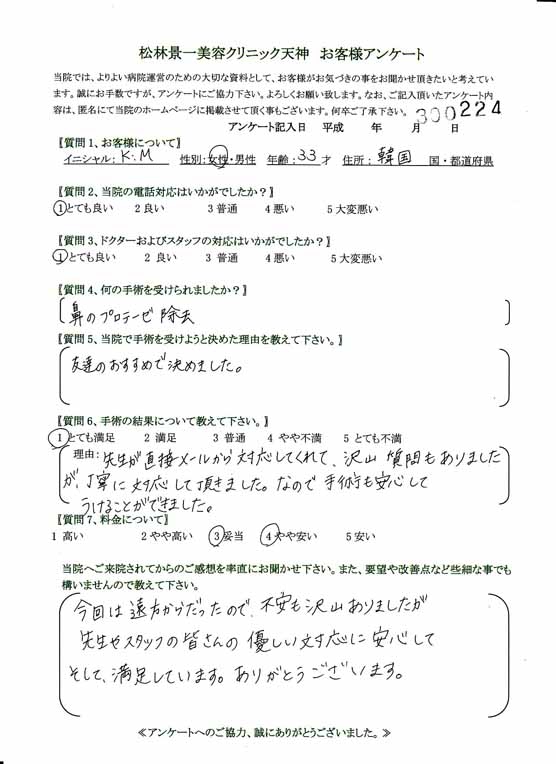 松林景一美容クリニック天神　お客様アンケート
当院では、よりよい病院運営のための大切な資料として、お客様がお気づきの事をお聞かせ頂きたいと考えてい
ます。誠にお手数ですが、アンケートにご協力下さい。よろしくお願い致します。なお、ご記入頂いたアンケート内
容は、匿名にて当院のホームページに掲載させて頂く事もございます。何卒ご了承下さい。
300224
アンケート記入日　平成　　年　　月　　日
【質問1、お客様について】
イニシャル: K.M　性別:女性・男性　年齢:33才　住所:韓国　国・都道府県
【質問2、当院の電話対応はいかがでしたか？】
1とても良い　2 良い　3 普通　4 悪い　5 大変悪い
【質問3、ドクターおよびスタッフの対応はいかがでしたか？】
1とても良い　2 良い　3 普通　4 悪い　5 大変悪い
【質問4、何の手術を受けられましたか？】
鼻のプロテーゼ除去
【質問5、当院で手術を受けようと決めた理由を教えて下さい。】
友達のおすすめで決めました。
【質問6、手術の結果について教えて下さい。】
1とても満足　2 満足　3 普通　4 やや不満　5 とても不満
理由: 先生が直接メールから対応してくれて、沢山質問もありました
が、丁寧に対応して頂きました。なので手術も安心して
うけることができました。
【質問7、料金について】
1 高い　2 やや高い　3 妥当　4 やや安い　5 安い
当院へご来院されてからのご感想を率直にお聞かせ下さい。また、要望や改善点など些細な事でも
構いませんので教えて下さい。
今回は遠方からだったので、不安も沢山ありましたが
先生やスタッフの皆さんの優しい対応に安心して
そして、満足しています。ありがとうございます。
≪アンケートへのご協力、誠にありがとうございました。≫